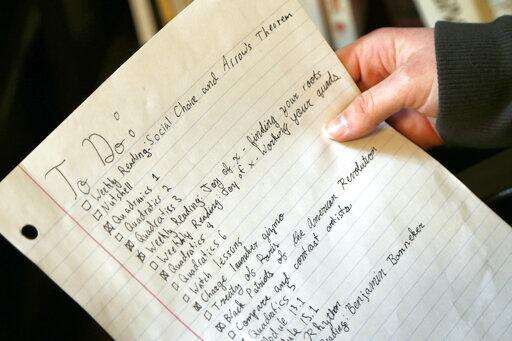 To Do:
Weekly Reading-Social Choice and Arrow's Theorem
Nutshell
Quadratics 1
Quadratics 2
Quadratics 3
Weekly Reading: Joy of x - finding your roots
Weekly Reading Joy of x - working your quads
Quadratics 4
Quadratics 6
Watch Lessons
Charge launcher gizmo
Treaty of Paris
Black Patriots of the American Revolution
Compare and contrast artists
Quadratics 5
Module 13.1
15.1
Rhythm
Reading: Benjamin Banneker